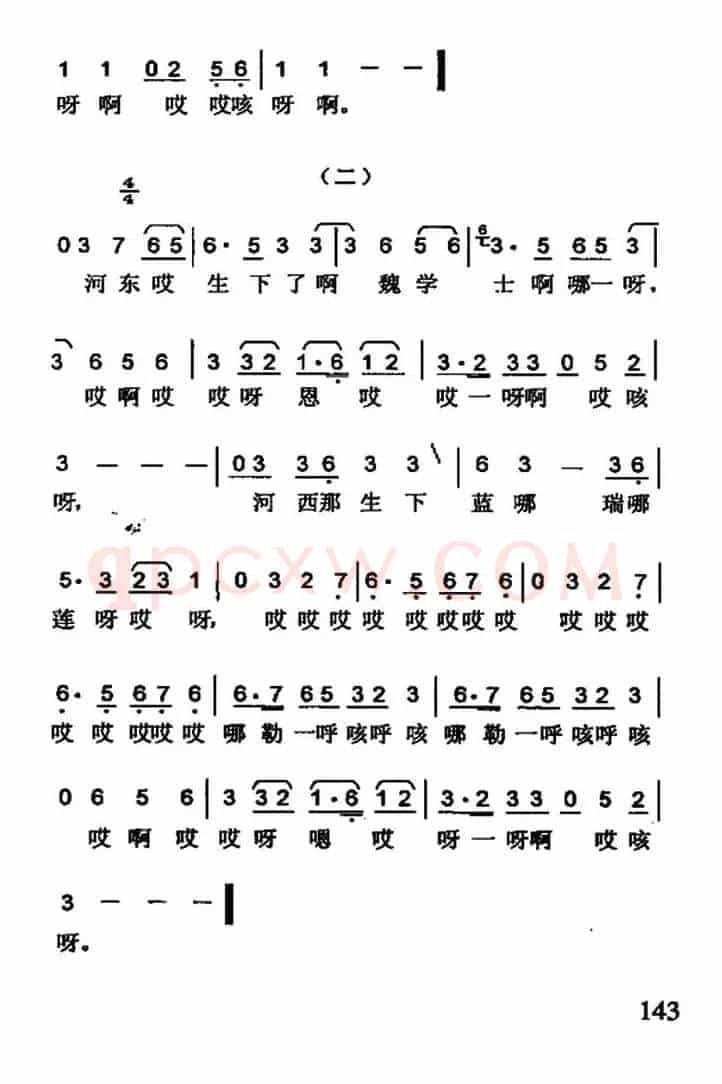 1 1 02 56 | 1 1 — —
呀 啊 哎 哎咳 呀 啊。
（二）
4/4
03 7 65 | 6· 5 3 3 | 3 6 5 6 | 6/7 3· 5 65 3 |
河 东 哎 生 下 了 啊 魏 学 士 啊 哪 一 呀，
3 6 5 6 | 3 32 1·6 12 | 3·2 33 0 5 2 |
哎 啊 哎 哎 呀 恩 哎 哎 一 呀啊 哎 咳
3 — — — | 03 36 3 3 | 6 3 — 36 |
呀， 河 西那 生 下 蓝 哪 瑞哪
5· 3 23 1 | 0 3 2 7 | 6· 5 67 6 | 0 3 2 7 |
莲 呀 哎 呀， 哎 哎 哎 哎 哎 哎哎 哎 哎 哎 哎
qpcxw.COM
6· 5 67 6 | 6·7 65 32 3 | 6·7 65 32 3 |
哎 哎 哎哎 哎 哪 勒 一呼 咳呼 咳 哪 勒 一呼 咳呼 咳
0 6 5 6 | 3 32 1·6 12 | 3·2 33 0 5 2 |
哎 啊 哎 哎 呀 嗯 哎 呀 一 呀啊 哎 咳
3 — — —
呀。
143